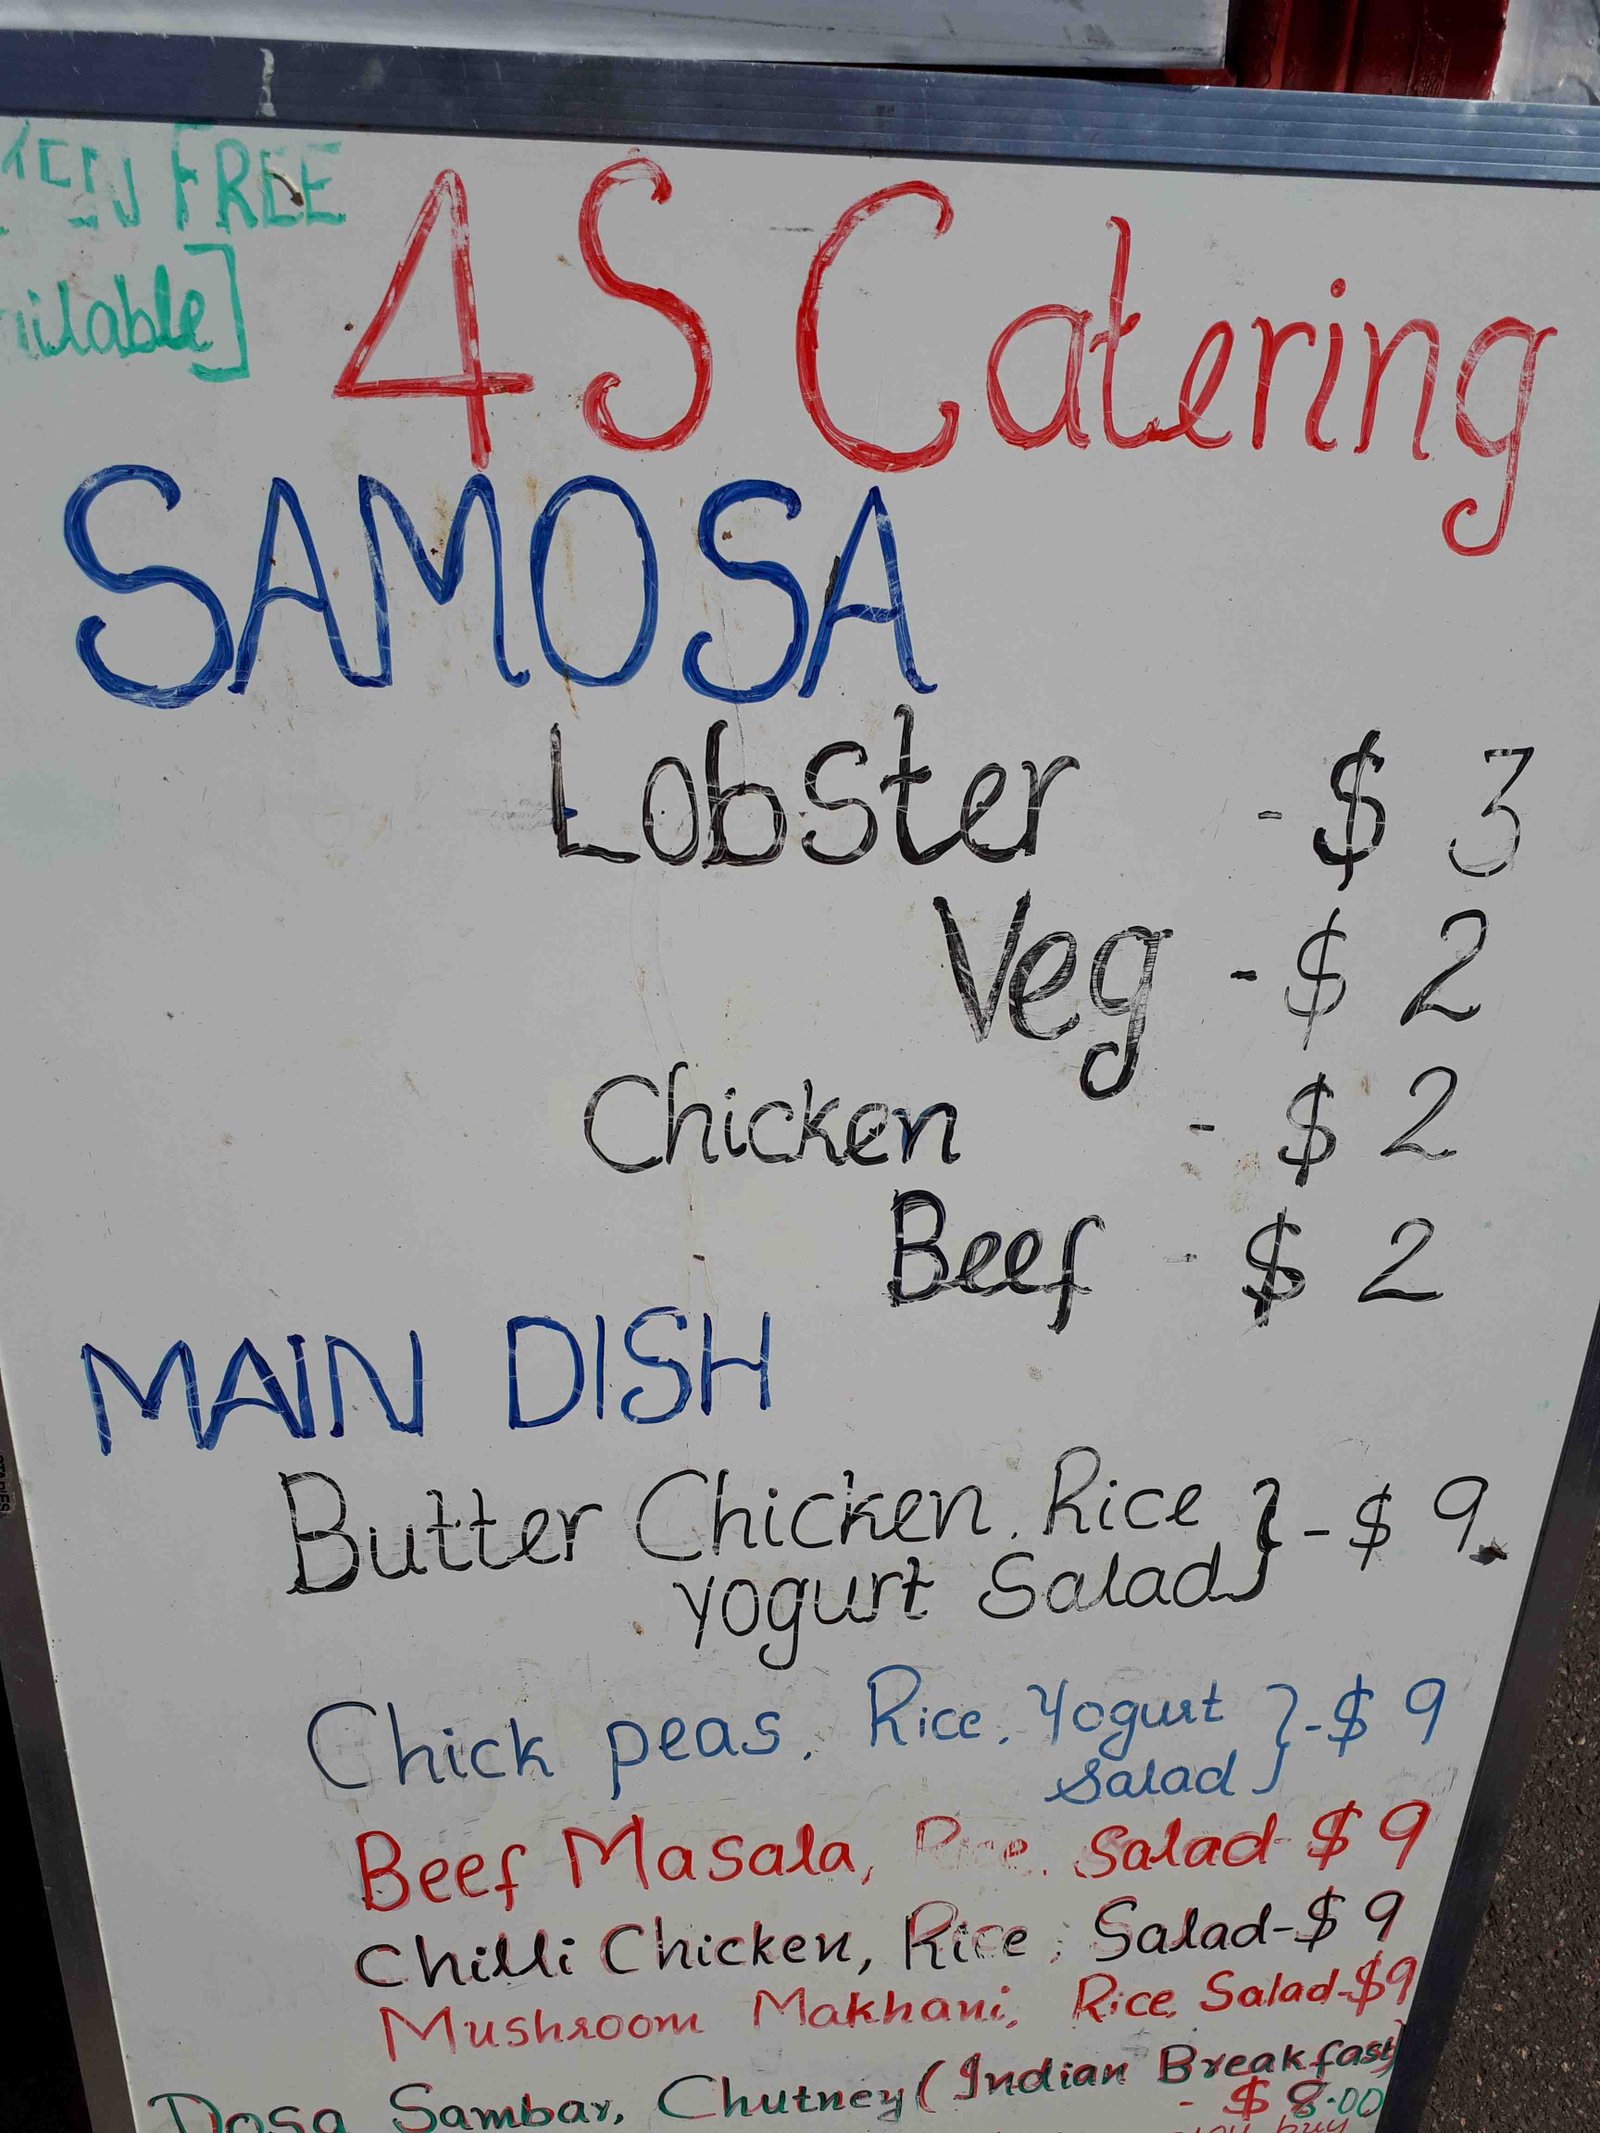 FREE
4S Catering
SAMOSA
Lobster - $ 3
Veg - $ 2
Chicken - $ 2
Beef - $ 2
MAIN DISH
Butter Chicken, Rice } - $ 9
Yogurt Salad
Chick peas, Rice, Yogurt } - $ 9
Salad
Beef Masala, Rice, Salad - $ 9
Chilli Chicken, Rice, Salad - $ 9
Mushroom Makhani, Rice, Salad - $9
Dosa Sambar, Chutney (Indian Breakfast)
- $ 8.00
you buy